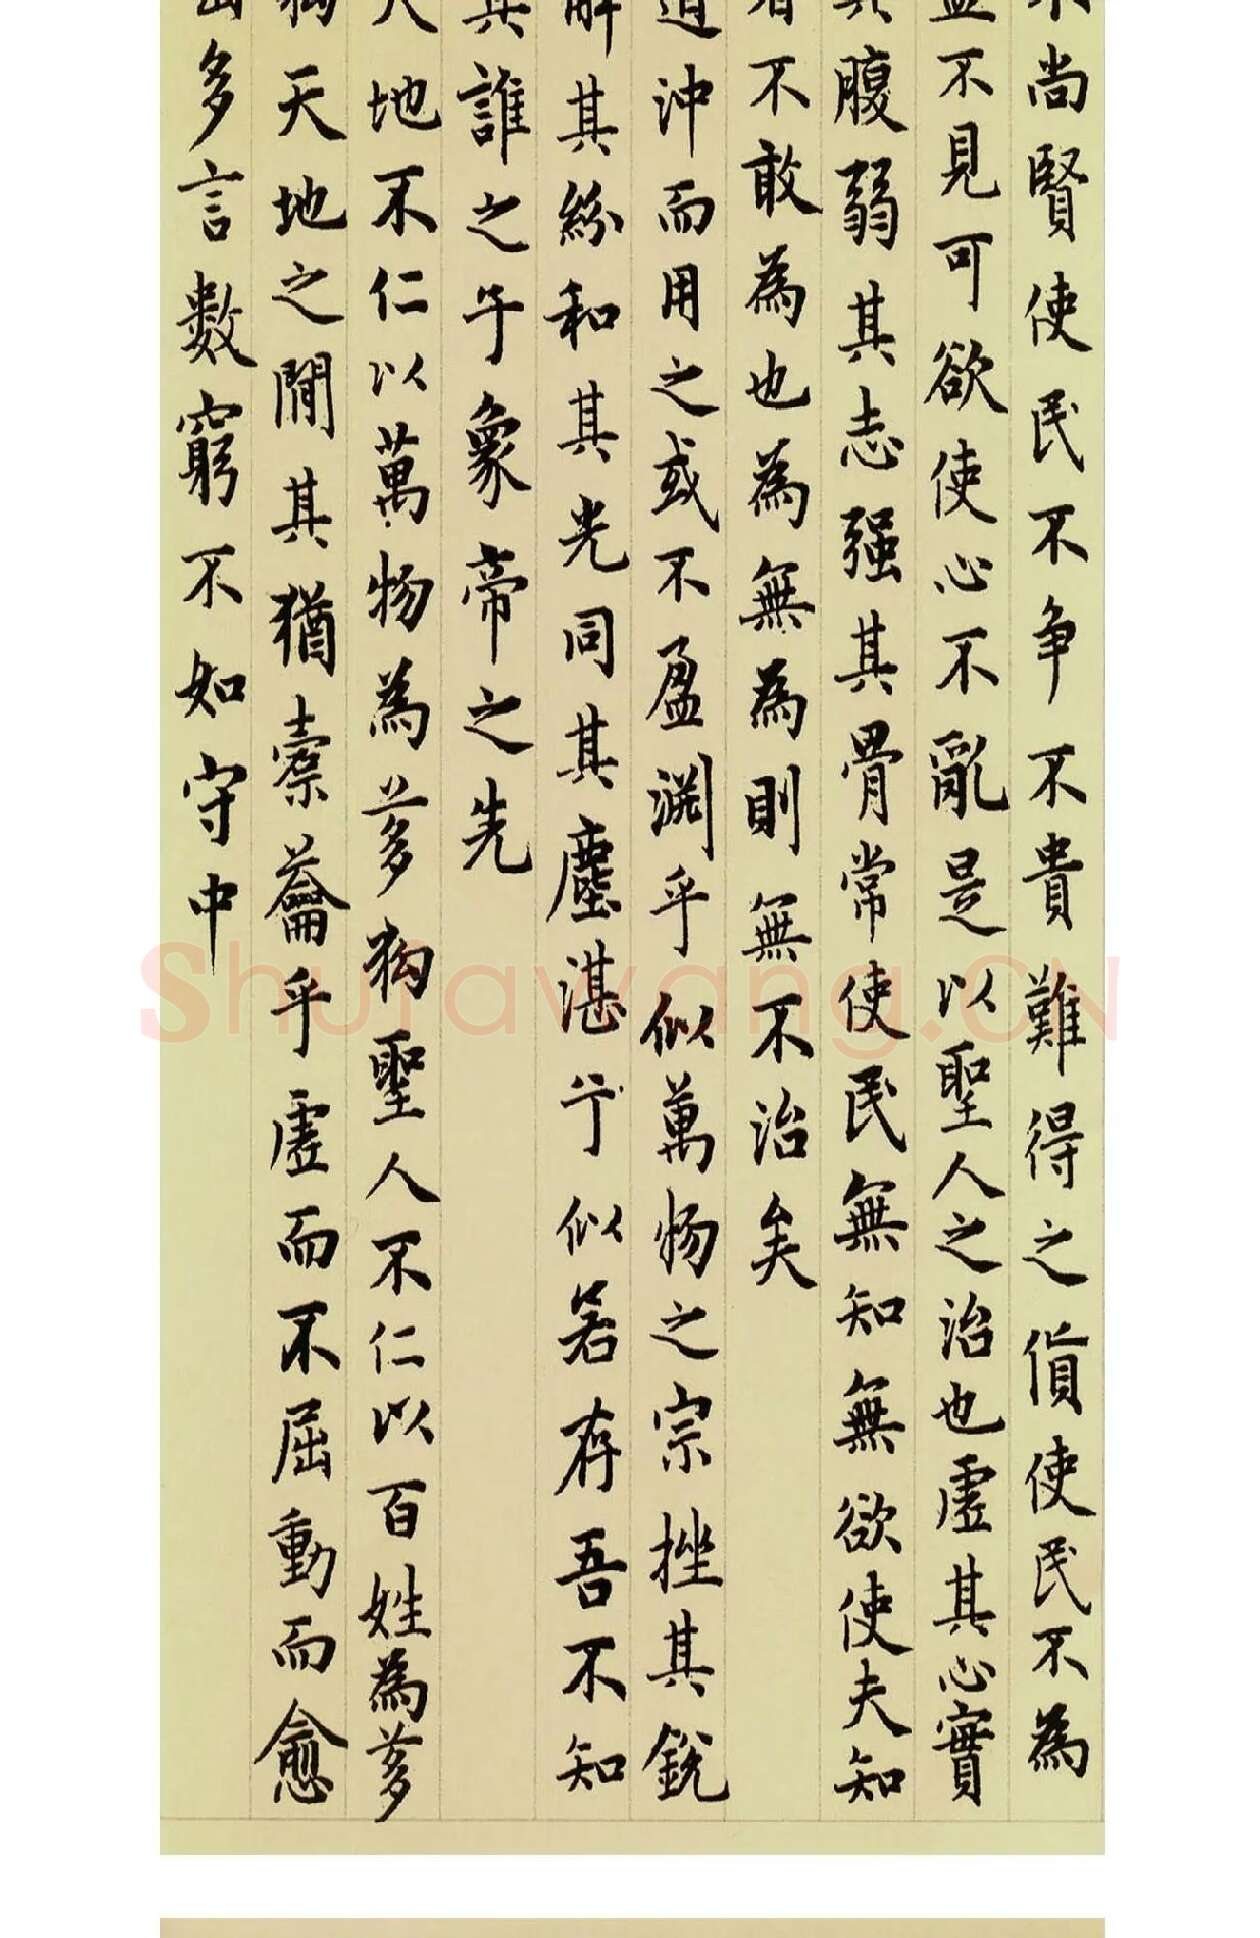 不尚賢使民不争不貴難得之貨使民不為
盜不見可欲使心不亂是以聖人之治也虛其心實
其腹弱其志强其骨常使民無知無欲使夫知
者不敢為也為無為則無不治矣
道沖而用之或不盈淵乎似萬物之宗挫其銳
解其紛和其光同其塵湛兮似若存吾不知
其誰之子象帝之先
天地不仁以萬物為芻狗聖人不仁以百姓為芻
狗天地之間其猶橐籥乎虛而不屈動而愈
出多言數窮不如守中
Shufawang.CN